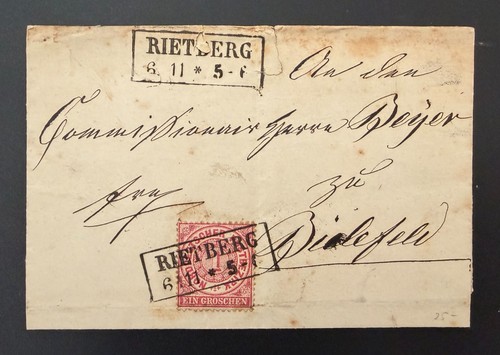 RIETBERG
6 11 * 5-6
An den
Commissionair Herrn Beyer
frei
zu
Bielefeld
RIETBERG
6 11 * 5-6
1
EIN GROSCHEN
25-